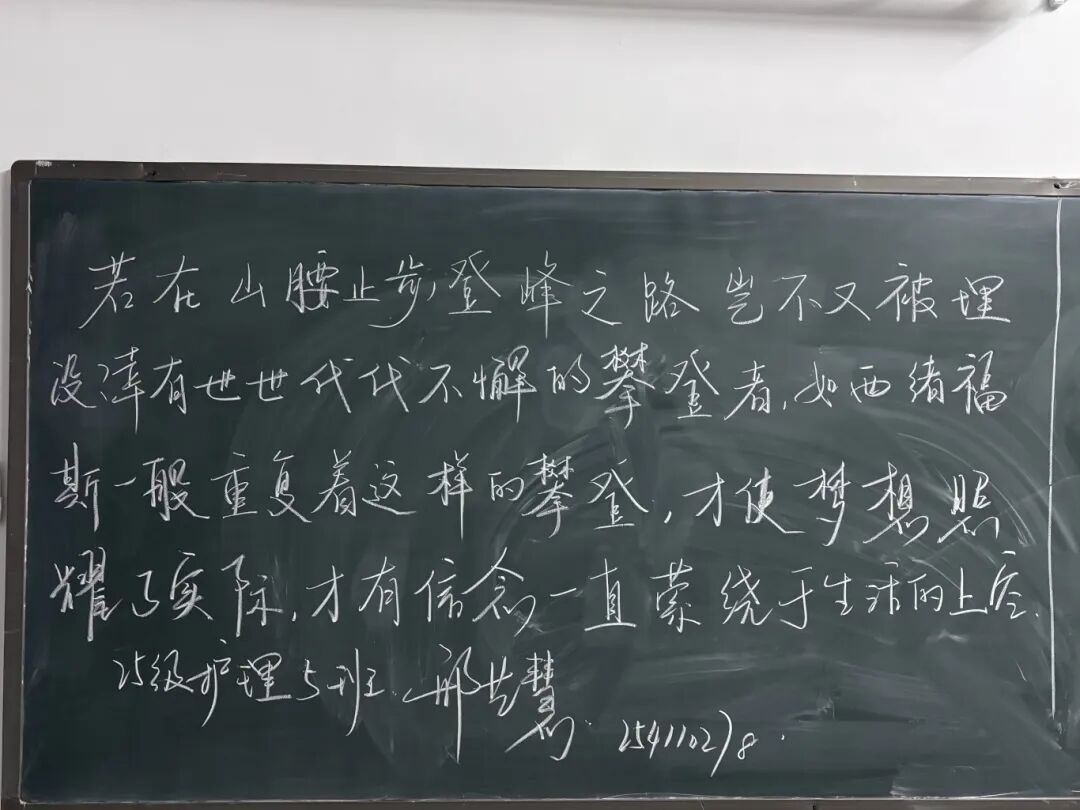 若在山腰止步,登峰之路岂不又被埋
没,幸有世世代代不懈的攀登者,如西绪福
斯一般重复着这样的攀登,才使梦想照
耀了实际,才有信念一直萦绕于生活的上空.
25级护理5班.邢共慧. 254110278.